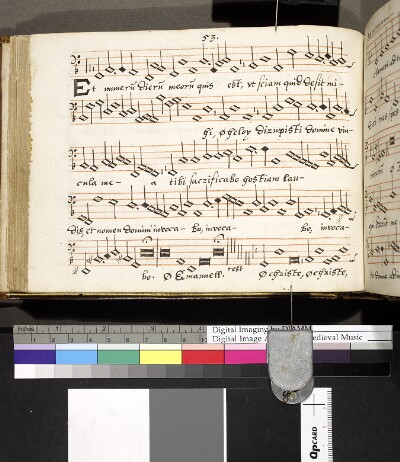 53.
Et numerū dierū meorū quis est, vt sciam quid desit mi-
hi, O heloy dirupisti domine vin-
cula me- a tibi sacrificabo hostiam lau-
dis et nomen domini invoca- bo, invoca- bo, invoca-
bo. O Emanuell. rest O christe, O christe,
Inches 1 2
Digital Imaging by DIAMM
Digital Image edieval Music
QPCARD